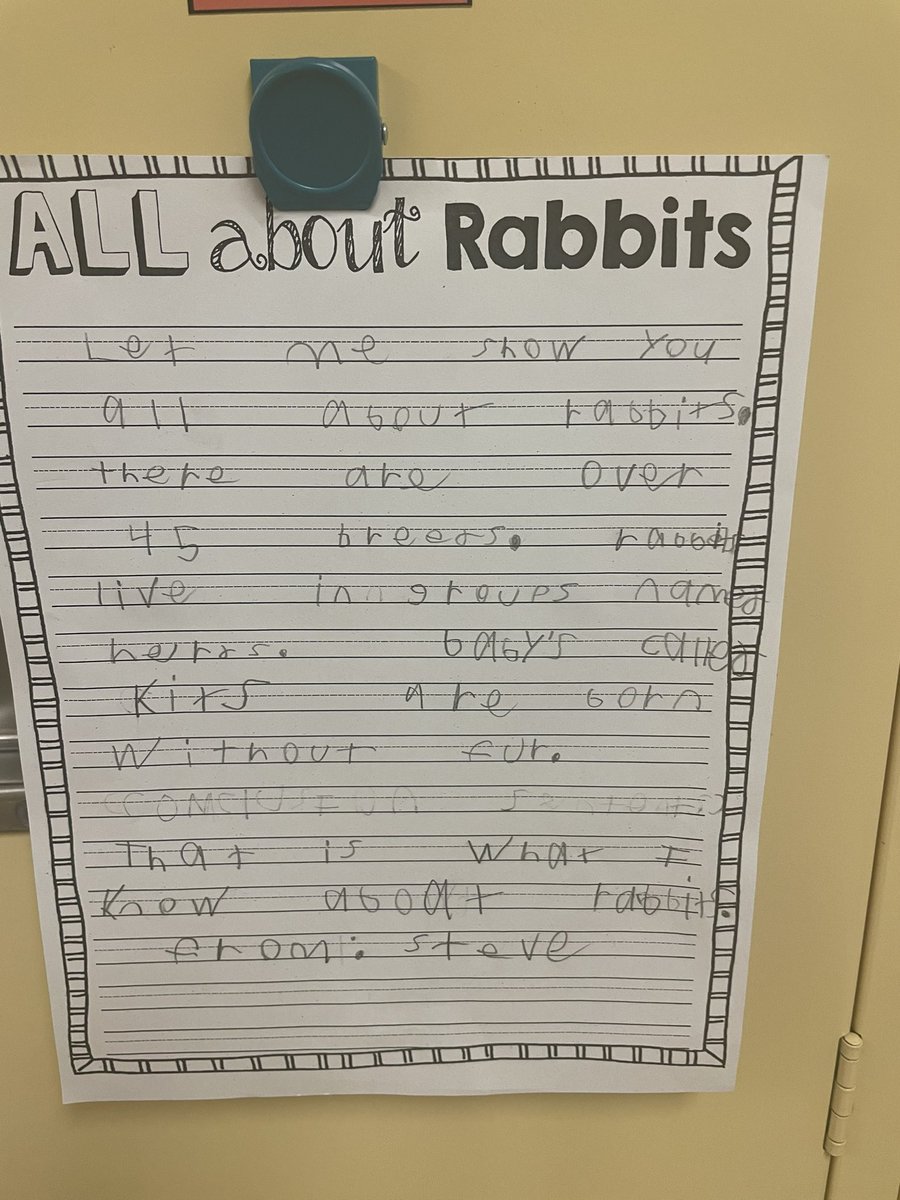 ALL about Rabbits
Let me show you
all about rabbits.
there are over
45 breeds. rabbits
live in groups named
heirrs. baby's called
kits are born
without fur.
conclusion
That is what I
know aboat rabbits.
from: steve